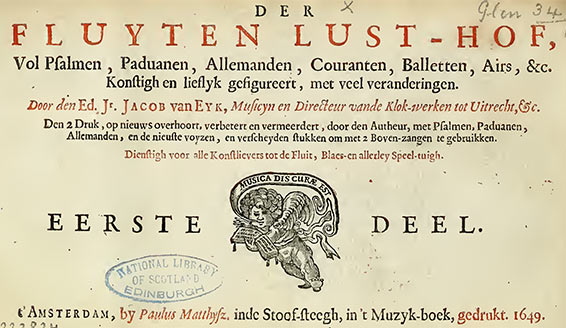 DER
Glen 34
FLUYTEN LUST-HOF,
Vol Psalmen, Paduanen, Allemanden, Couranten, Balletten, Airs, &c.
Konstigh en lieflyk gefigureert, met veel veranderingen.
Door den Ed. Jr. JACOB van EYK, Musicyn en Directeur vande Klok-werken tot Uitrecht, &c.
Den 2 Druk, op nieuws overhoort, verbetert en vermeerdert, door den Autheur, met Psalmen, Paduanen,
Allemanden, en de nieuste voyzen, en verscheyden stukken om met 2 Boven-zangen te gebruikken.
Dienstigh voor alle Konstlievers tot de Fluit, Blaes- en allerley Speel-tuigh.
MUSICA DIS CURÆ EST
EERSTE DEEL.
NATIONAL LIBRARY
OF SCOTLAND
EDINBURGH
t'AMSTERDAM, by Paulus Matthysz. inde Stoof-steegh, in 't Muzyk-boek, gedrukt. 1649.